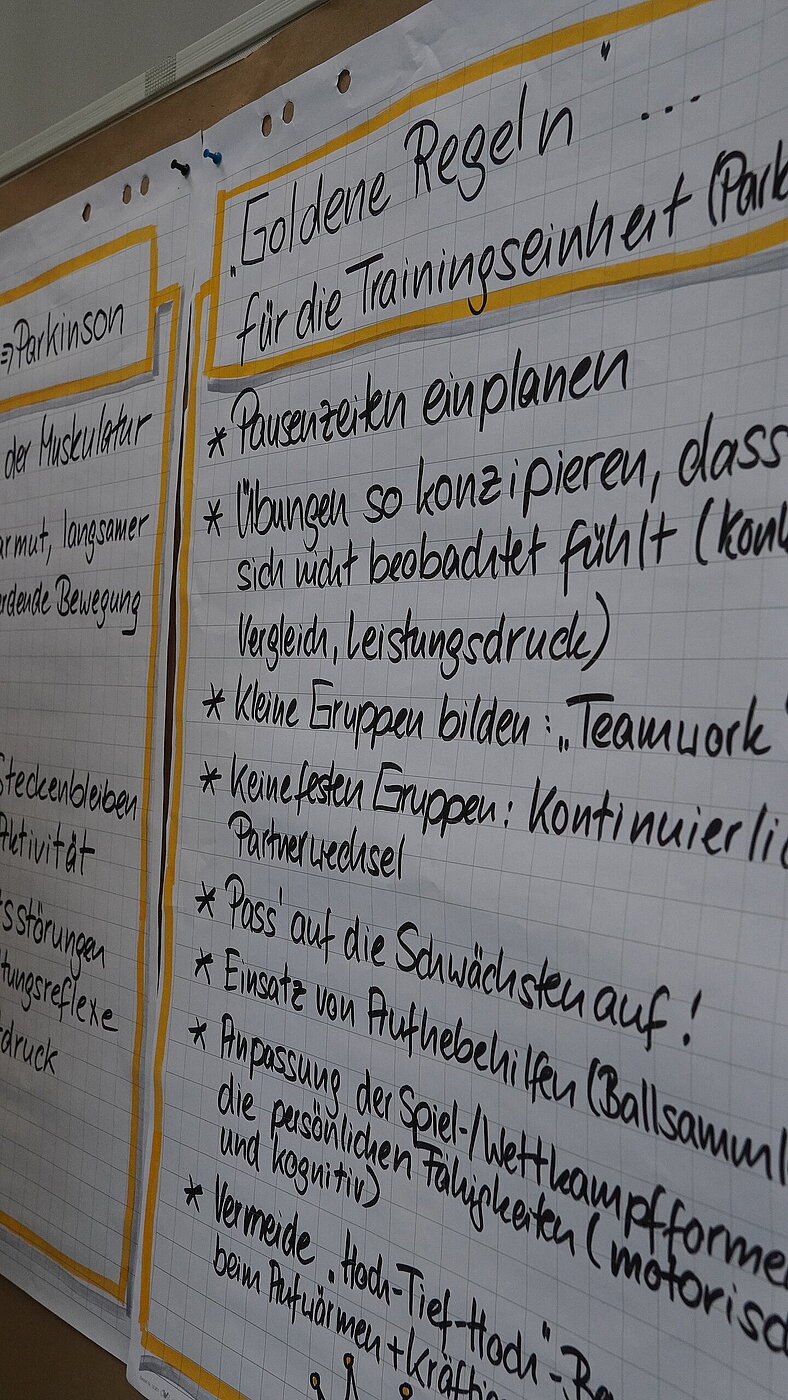 ⇒Parkinson
der Muskulatur
langsamer
Bewegung
Steckenbleiben
Aktivität
störungen
reflexe
druck
„Goldene Regeln" ...
für die Trainingseinheit (Park
* Pausenzeiten einplanen
* Übungen so konzipieren, dass
sich nicht beobachtet fühlt (
Vergleich, Leistungsdruck)
* Kleine Gruppen bilden: „Teamwork"
* Keine festen Gruppen: Kontinuierlic
Partnerwechsel
* Pass' auf die Schwächsten auf!
* Einsatz von Aufhebehilfen (Ballsamml
* Anpassung der Spiel-/Wettkampfformen
die persönlichen Fähigkeiten (motorisc
und kognitiv)
* Vermeide „Hoch-Tief-Hoch"-
beim Aufwärmen + Kräftig